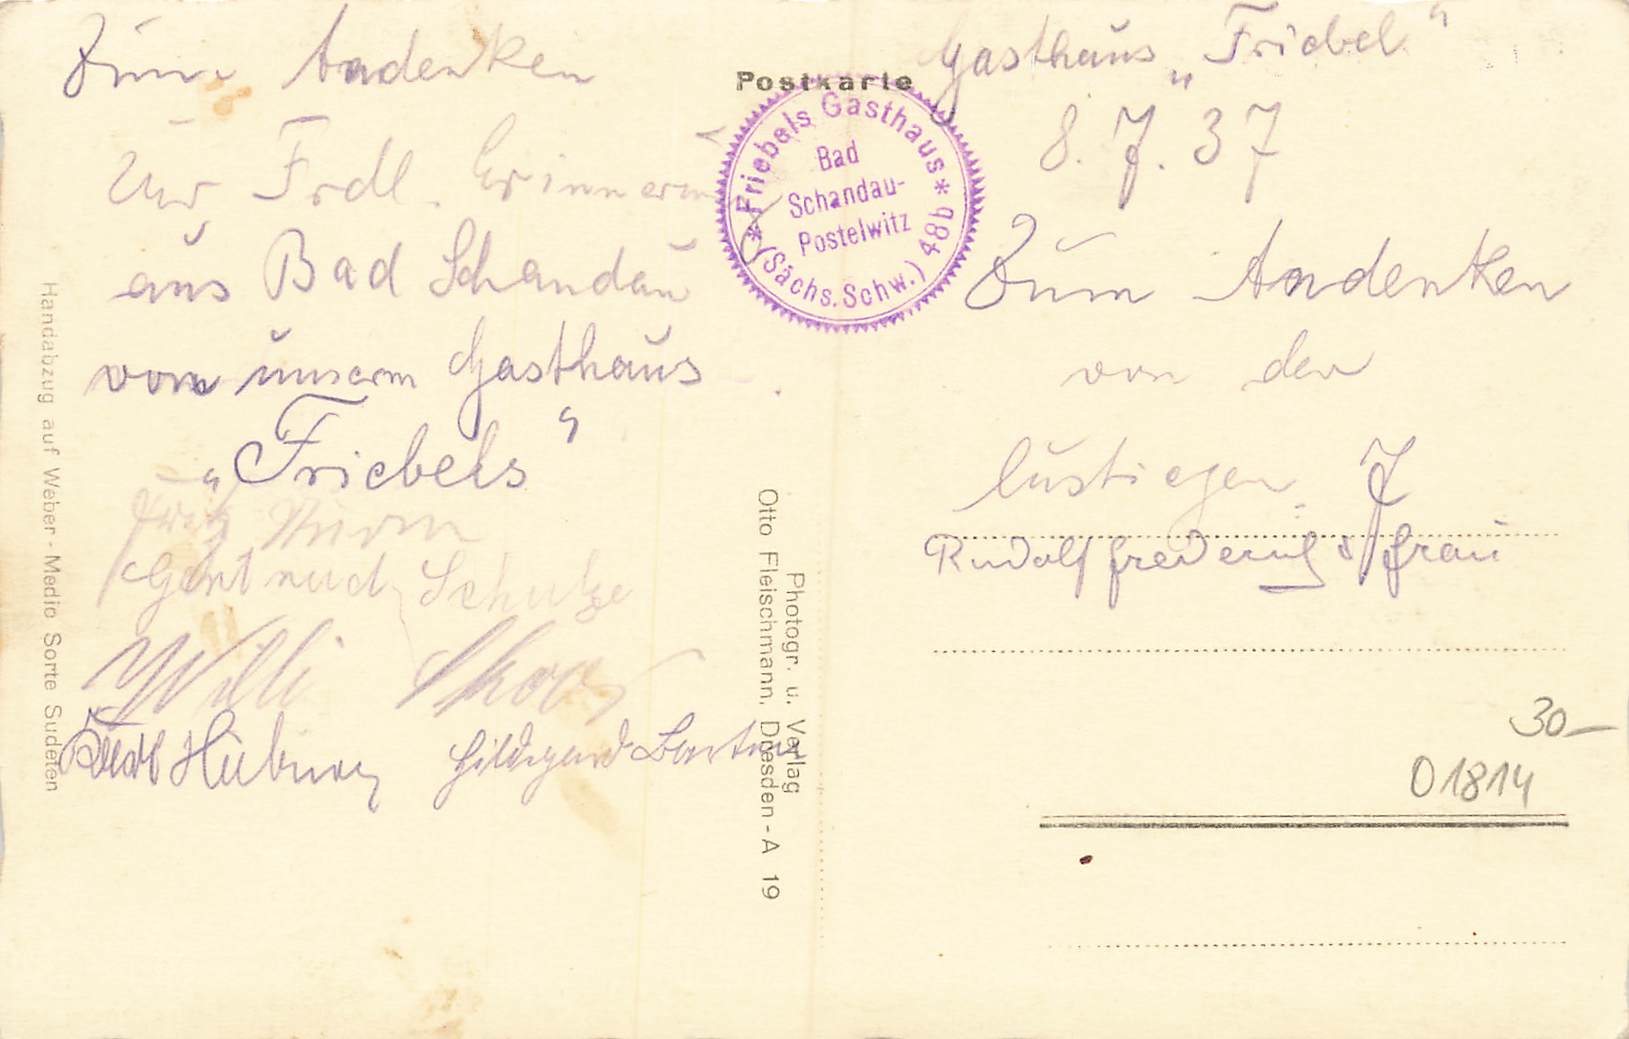 Zum Andenken
Zur Frdl. Erinnerung
aus Bad Schandau
von unserm Gasthaus
„Friebels"
Fritz
Schulze
Willi
Hübner Hildegard
Postkarte
*Friebels Gasthaus* 48b
Bad
Schandau-
Postelwitz
(Sächs. Schw.)
Gasthaus „Friebel"
8. 7. 37
Zum Andenken
von den
lustiegen 7
Rudolf & Frau
30-
01814
Handabzug auf Weber-Medio Sorte Sudeten
Photogr. u. Verlag
Otto Fleischmann, Dresden-A 19